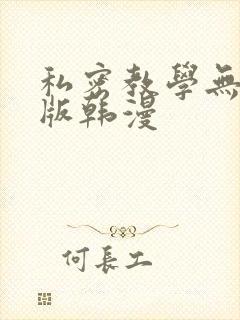 私密教學無
版韩漫
何長工